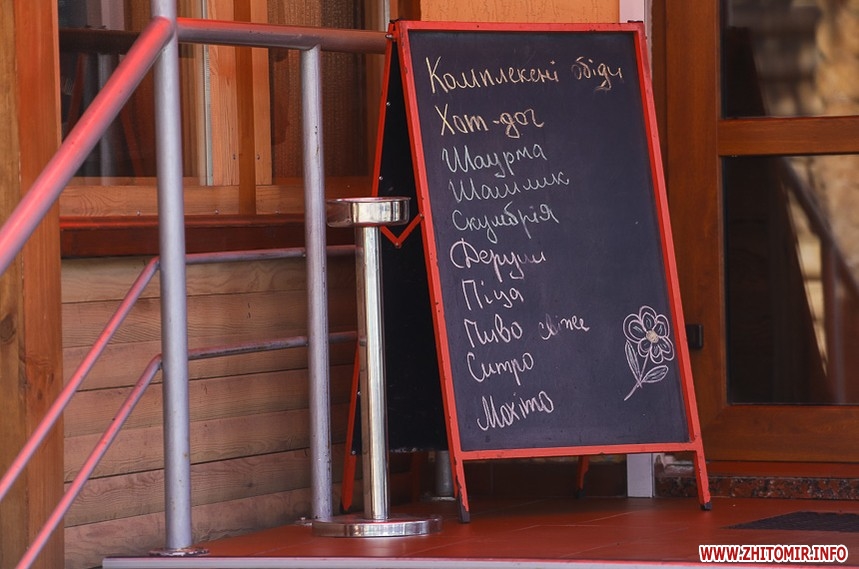 Комплексні обіди
Хот-дог
Шаурма
Шашлик
Скумбрія
Деруни
Піца
Пиво свіже
Ситро
Мохіто
WWW.ZHITOMIR.INFO